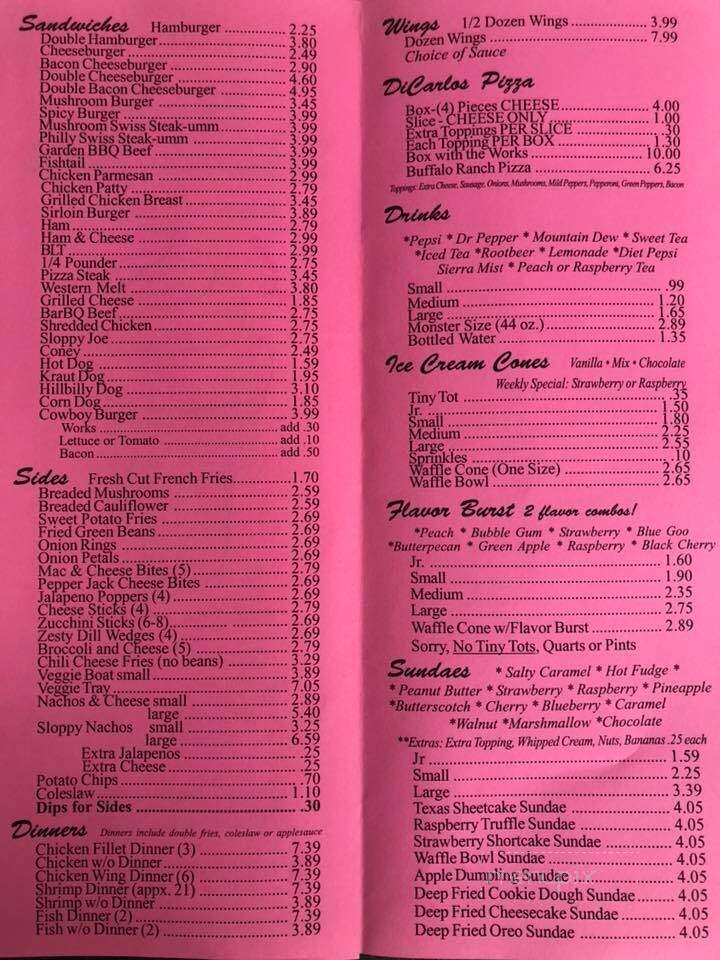 Sandwiches Hamburger .............. 2.25
Double Hamburger .............. 3.80
Cheeseburger .............. 2.49
Bacon Cheeseburger .............. 2.90
Double Cheeseburger .............. 4.60
Double Bacon Cheeseburger .............. 4.95
Mushroom Burger .............. 3.45
Spicy Burger .............. 3.99
Mushroom Swiss Steak-umm .............. 3.99
Philly Swiss Steak-umm .............. 3.99
Garden BBQ Beef .............. 3.99
Fishtail .............. 3.99
Chicken Parmesan .............. 2.99
Chicken Patty .............. 2.79
Grilled Chicken Breast .............. 3.45
Sirloin Burger .............. 3.89
Ham .............. 2.79
Ham & Cheese .............. 2.99
BLT .............. 2.99
1/4 Pounder .............. 2.75
Pizza Steak .............. 3.45
Western Melt .............. 3.80
Grilled Cheese .............. 1.85
BarBQ Beef .............. 2.75
Shredded Chicken .............. 2.75
Sloppy Joe .............. 2.75
Coney .............. 2.49
Hot Dog .............. 1.59
Kraut Dog .............. 1.95
Hillbilly Dog .............. 3.10
Corn Dog .............. 1.85
Cowboy Burger .............. 3.99
Works .............. add .30
Lettuce or Tomato .............. add .10
Bacon .............. add .50
Sides Fresh Cut French Fries .............. 1.70
Breaded Mushrooms .............. 2.59
Breaded Cauliflower .............. 2.59
Sweet Potato Fries .............. 2.69
Fried Green Beans .............. 2.69
Onion Rings .............. 2.69
Onion Petals .............. 2.69
Mac & Cheese Bites (5) .............. 2.79
Pepper Jack Cheese Bites .............. 2.69
Jalapeno Poppers (4) .............. 2.69
Cheese Sticks (4) .............. 2.79
Zucchini Sticks (6-8) .............. 2.69
Zesty Dill Wedges (4) .............. 2.69
Broccoli and Cheese (5) .............. 2.79
Chili Cheese Fries (no beans) .............. 3.29
Veggie Boat small .............. 3.89
Veggie Tray .............. 7.05
Nachos & Cheese small .............. 2.89
large .............. 5.40
Sloppy Nachos small .............. 3.25
large .............. 6.59
Extra Jalapenos .............. .25
Extra Cheese .............. .25
Potato Chips .............. .70
Coleslaw .............. 1.10
Dips for Sides .............. .30
Dinners Dinners include double fries, coleslaw or applesauce
Chicken Fillet Dinner (3) .............. 7.39
Chicken w/o Dinner .............. 3.89
Chicken Wing Dinner (6) .............. 7.39
Shrimp Dinner (appx. 21) .............. 7.39
Shrimp w/o Dinner .............. 3.89
Fish Dinner (2) .............. 7.39
Fish w/o Dinner (2) .............. 3.89
Wings 1/2 Dozen Wings .............. 3.99
Dozen Wings .............. 7.99
Choice of Sauce
DiCarlos Pizza
Box-(4) Pieces CHEESE .............. 4.00
Slice - CHEESE ONLY .............. 1.00
Extra Toppings PER SLICE .............. .30
Each Topping PER BOX .............. 1.30
Box with the Works .............. 10.00
Buffalo Ranch Pizza .............. 6.25
Toppings: Extra Cheese, Sausage, Onions, Mushrooms, Mild Peppers, Pepperoni, Green Peppers, Bacon
Drinks
*Pepsi * Dr Pepper * Mountain Dew * Sweet Tea
*Iced Tea *Rootbeer * Lemonade *Diet Pepsi
Sierra Mist * Peach or Raspberry Tea
Small .............. .99
Medium .............. 1.20
Large .............. 1.65
Monster Size (44 oz.) .............. 2.89
Bottled Water .............. 1.35
Ice Cream Cones Vanilla • Mix • Chocolate
Weekly Special: Strawberry or Raspberry
Tiny Tot .............. .35
Jr. .............. 1.50
Small .............. 1.80
Medium .............. 2.25
Large .............. 2.55
Sprinkles .............. .10
Waffle Cone (One Size) .............. 2.65
Waffle Bowl .............. 2.65
Flavor Burst 2 flavor combos!
*Peach * Bubble Gum * Strawberry * Blue Goo
*Butterpecan * Green Apple * Raspberry * Black Cherry
Jr. .............. 1.60
Small .............. 1.90
Medium .............. 2.35
Large .............. 2.75
Waffle Cone w/Flavor Burst .............. 2.89
Sorry, No Tiny Tots, Quarts or Pints
Sundaes * Salty Caramel * Hot Fudge *
* Peanut Butter * Strawberry * Raspberry * Pineapple
*Butterscotch * Cherry * Blueberry * Caramel
*Walnut *Marshmallow *Chocolate
**Extras: Extra Topping, Whipped Cream, Nuts, Bananas .25 each
Jr .............. 1.59
Small .............. 2.25
Large .............. 3.39
Texas Sheetcake Sundae .............. 4.05
Raspberry Truffle Sundae .............. 4.05
Strawberry Shortcake Sundae .............. 4.05
Waffle Bowl Sundae .............. 4.05
Apple Dumpling Sundae .............. 4.05
Deep Fried Cookie Dough Sundae .............. 4.05
Deep Fried Cheesecake Sundae .............. 4.05
Deep Fried Oreo Sundae .............. 4.05